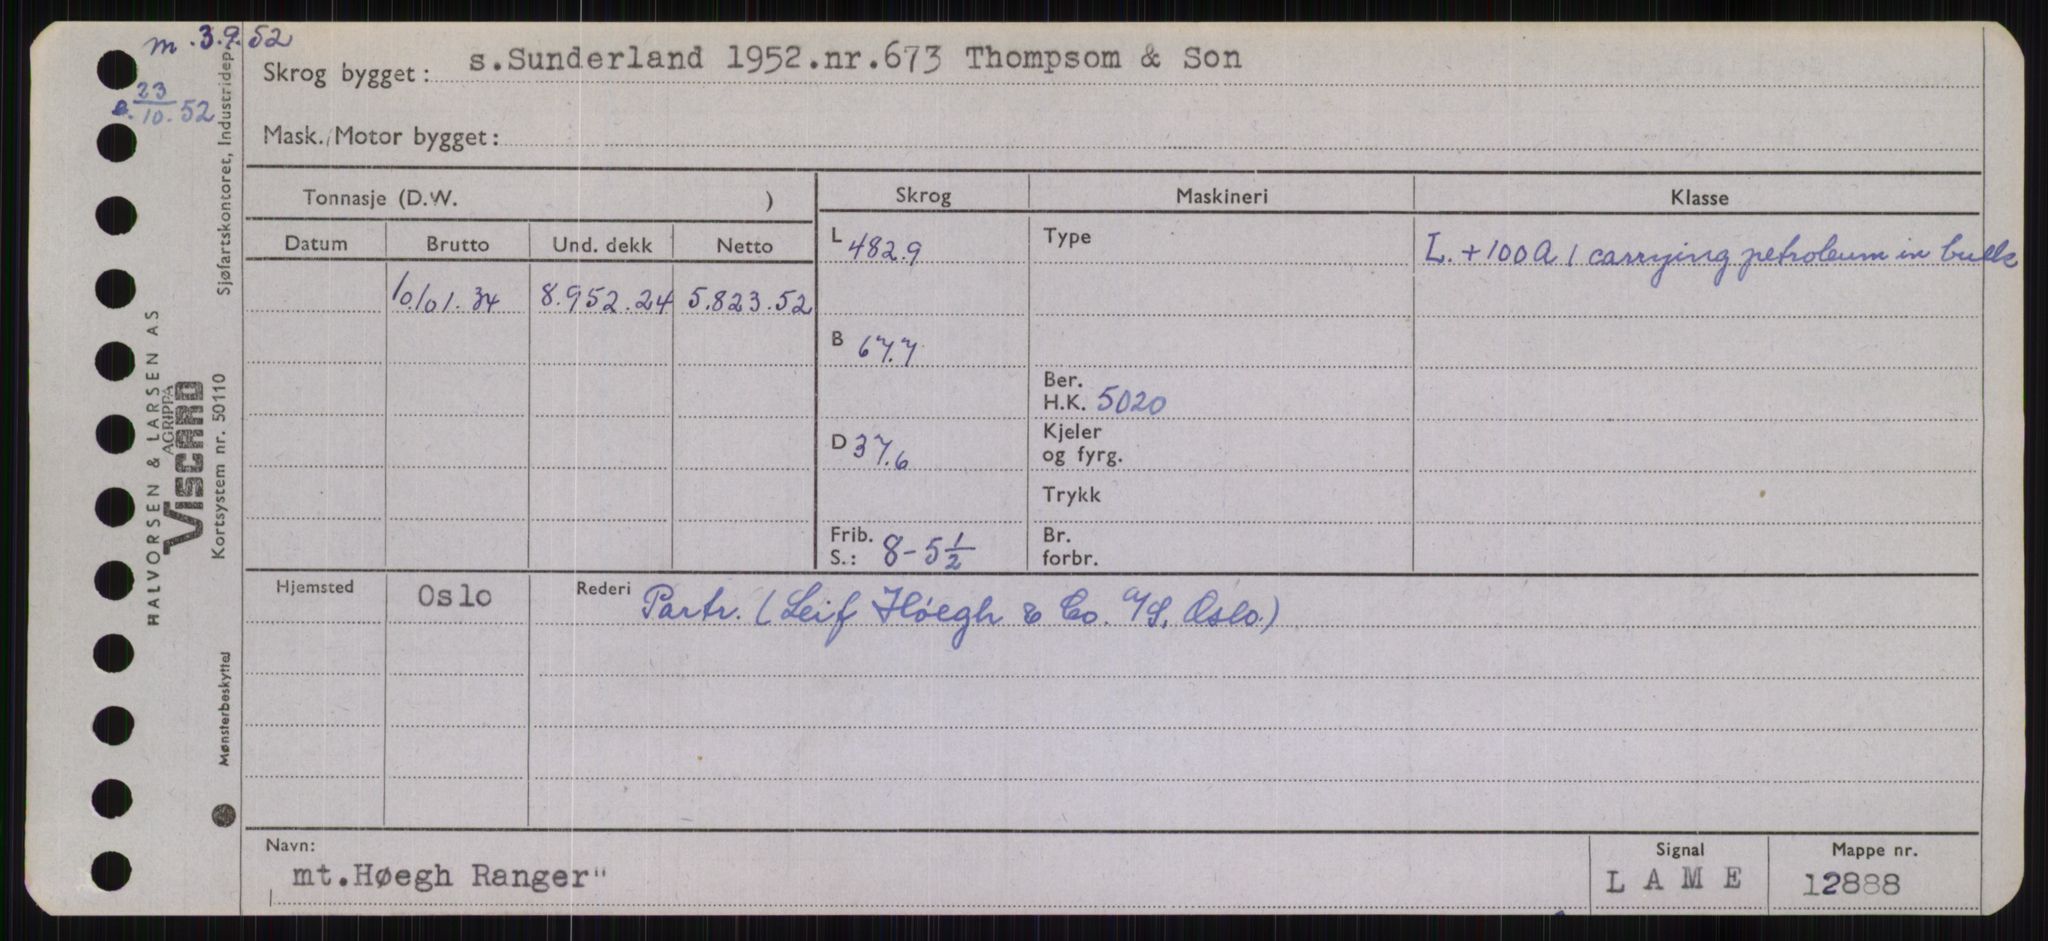 m. 3.9.52
e. 23/10. 52
Skrog bygget: s.Sunderland 1952.nr.673 Thompsom & Son
Mask./Motor bygget:
Tonnasje (D.W. )
Skrog Maskineri Klasse
Datum Brutto Und. dekk Netto
10.101.34 8.952.24 5.823.52
L 482.9
B 67.7
D 37.6
Frib. S.: 8-5 1/2
Type
Ber.
H.K. 5020
Kjeler
og fyrg.
Trykk
Br.
forbr.
L. +100A1 carrying petroleum in bulk
Hjemsted Oslo Rederi Partr. (Leif Høegh & Co. A/S, Oslo.)
Navn:
mt.Høegh Ranger"
Signal
L A M E
Mappe nr.
12888
HALVORSEN & LARSEN AS
AGRIPPA
Viscard
Kortsystem nr. 50110
Sjøfartskontoret, Industridep
Mønsterbeskyttet